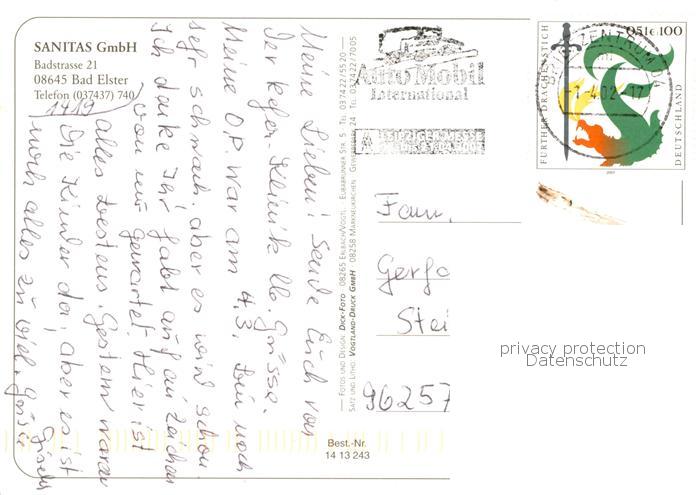 SANITAS GmbH
Badstrasse 21
08645 Bad Elster
Telefon (037437) 740
1419
Meine Lieben! Sende Euch von
der Klinik lb. Grüsse.
Meine O.P. war am 4.3. bin noch
sehr schwach, aber es wird schon.
Ich denke Ihr habt auf ein Zeichen
von mir gewartet. Hier ist
alles bestens. Gestern waren
die Kinder da, aber es ist
noch alles zu viel. Grüsse
Gisela
FOTOS UND DESIGN: DICK-FOTO 08265 ERLBACH/VOGTL. EUBABRUNNER STR. 5 TEL. 037422/5520
SATZ UND LITHO: VOGTLAND-DRUCK GMBH 08258 MARKNEUKIRCHEN GEWERBEPARK 24 TEL. 037422/7005
Best.-Nr.
14 13 243
Auto Mobil
International
LEIPZIGER MESSE
FURTHER DRACHENSTICH
0,51€ 100
DEUTSCHLAND
2001
BRIEFZENTRUM
-1.-4.02-17
Fam.
Gerho
Stei
96257
privacy protection
Datenschutz